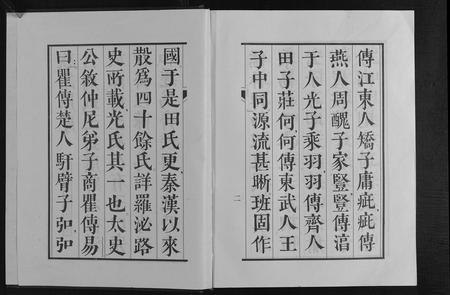 傳江東人矯子庸疵疵傳
燕人周醜子家豎豎傳淄
于人光子乘羽羽傳齊人
田子莊何何傳東武人王
子中同源流甚晰班固作
二
國于是田氏更秦漢以來
散為四十餘氏詳羅泌路
史所載光氏其一也太史
公敘仲尼弟子商瞿傳易
曰瞿傳楚人馯臂子弘弘